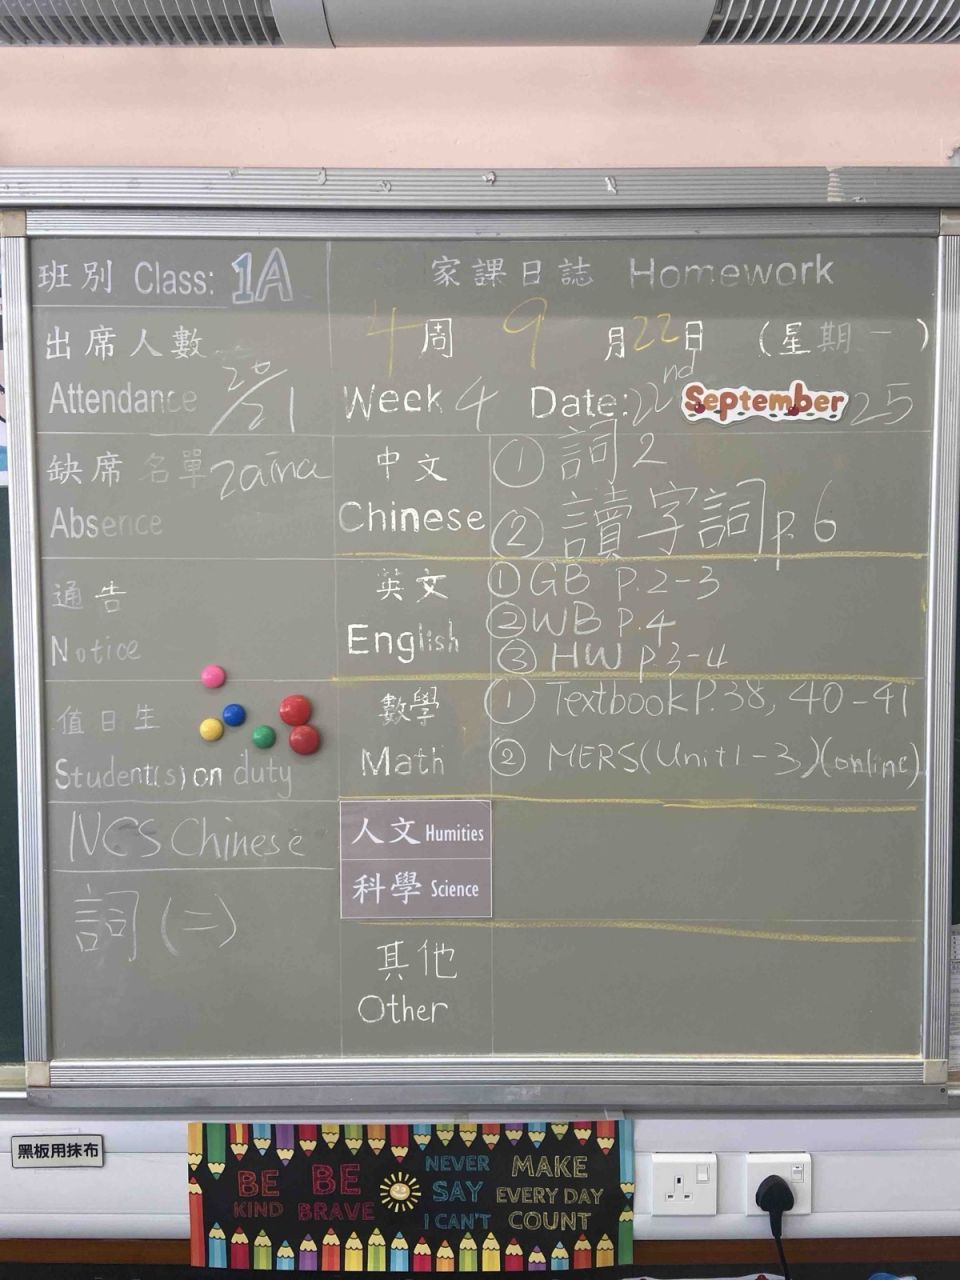 班別 Class: 1A
家課日誌 Homework
出席人數
Attendance 20/21
4周 9月22日 (星期一)
Week 4 Date: 22nd September 25
缺席名單 Zaina
Absence
中文
Chinese
① 詞2
② 讀字詞 p.6
通告
Notice
英文
English
① GB P.2-3
② WB P.4
③ HW p.3-4
值日生
Student(s) on duty
數學
Math
① Textbook P.38, 40-41
② MERS(Unit1-3)(online)
NCS Chinese
詞(二)
人文 Humities
科學 Science
其他
Other
黑板用抹布
BE KIND
BE BRAVE
NEVER SAY I CAN'T
MAKE EVERY DAY COUNT